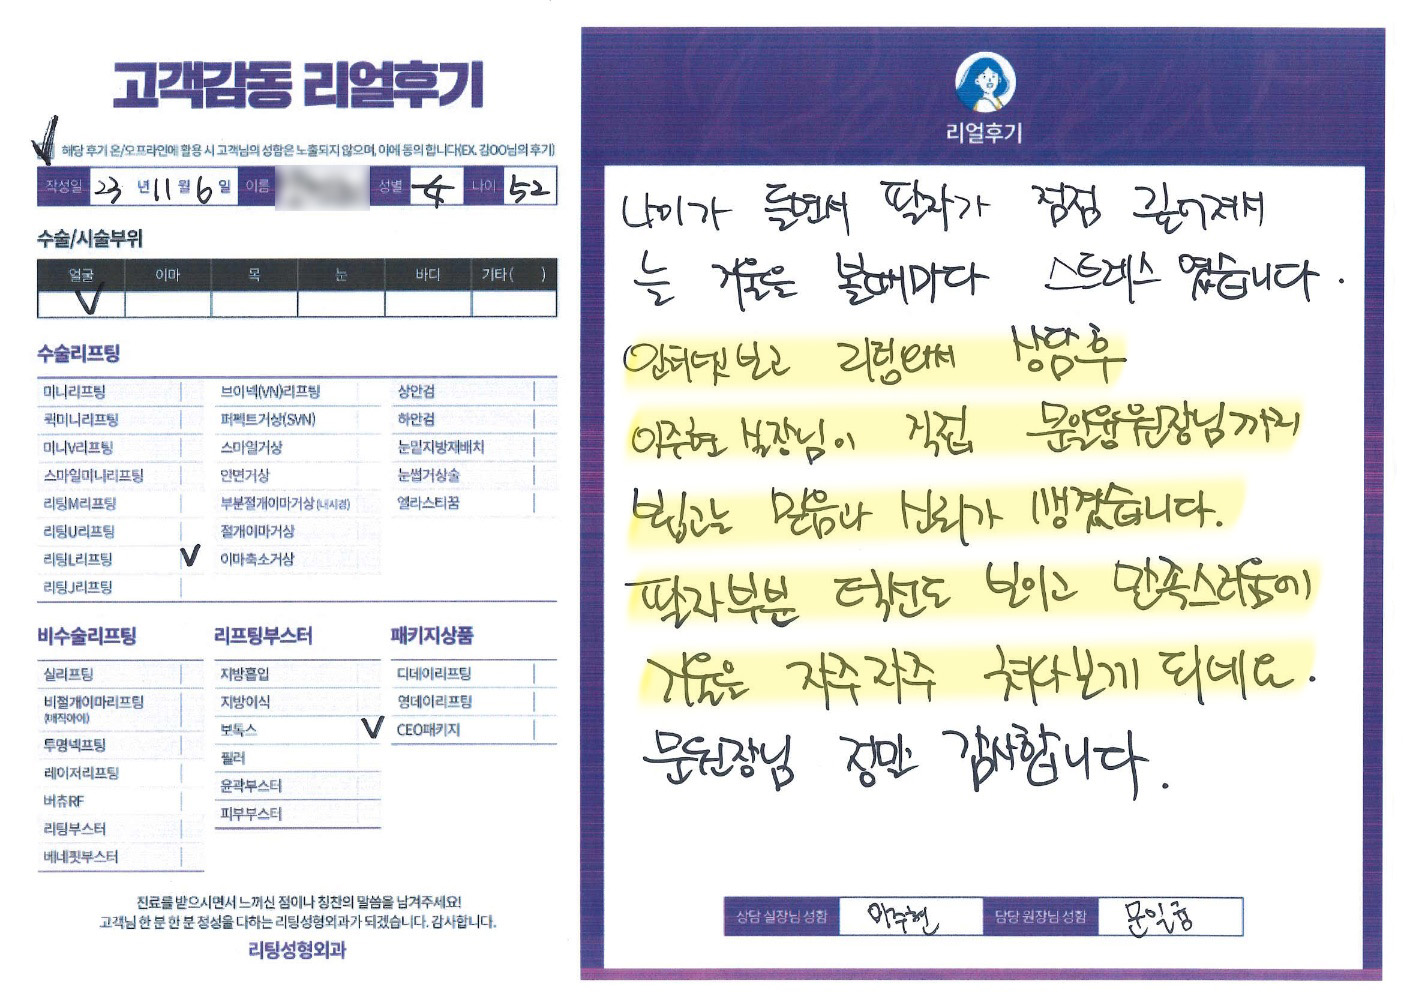 고객감동 리얼후기
해당 후기 온/오프라인에 활용 시 고객님의 성함은 노출되지 않으며, 이에 동의 합니다(EX. 김OO님의 후기)
작성일 23 년 11 월 6 일 이름 성별 女 나이 52
수술/시술부위
얼굴 이마 목 눈 바디 기타 ( )
수술리프팅
미니리프팅 브이넥(VN)리프팅 상안검
퀵미니리프팅 퍼펙트거상(SVN) 하안검
미니V리프팅 스마일거상 눈밑지방재배치
스마일미니리프팅 안면거상 눈썹거상술
리팅M리프팅 부분절개이마거상 (내시경) 엘라스티꿈
리팅U리프팅 절개이마거상
리팅L리프팅 이마축소거상
리팅J리프팅
비수술리프팅 리프팅부스터 패키지상품
실리프팅 지방흡입 디데이리프팅
비절개이마리프팅 지방이식 영데이리프팅
(매직아이)
보톡스 CEO패키지
투명넥프팅 필러
레이저리프팅 윤곽부스터
버츄RF 피부부스터
리팅부스터
베네핏부스터
진료를 받으시면서 느끼신 점이나 칭찬의 말씀을 남겨주세요!
고객님 한 분 한 분 정성을 다하는 리팅성형외과가 되겠습니다. 감사합니다.
리팅성형외과
리얼후기
나이가 들면서 팔자가 점점 깊어져서
늘 거울을 볼때마다 스트레스 였습니다.
인터넷보고 리팅와서 상담후
이주현 실장님이 직접 문일웅원장님까지
뵙고는 믿음과 신뢰가 생겼습니다.
팔자부분 턱선도 보이고 만족스러움에
거울을 자주자주 쳐다보게 되네요.
문원장님 정말 감사합니다.
상담 실장님 성함 이주현 담당 원장님 성함